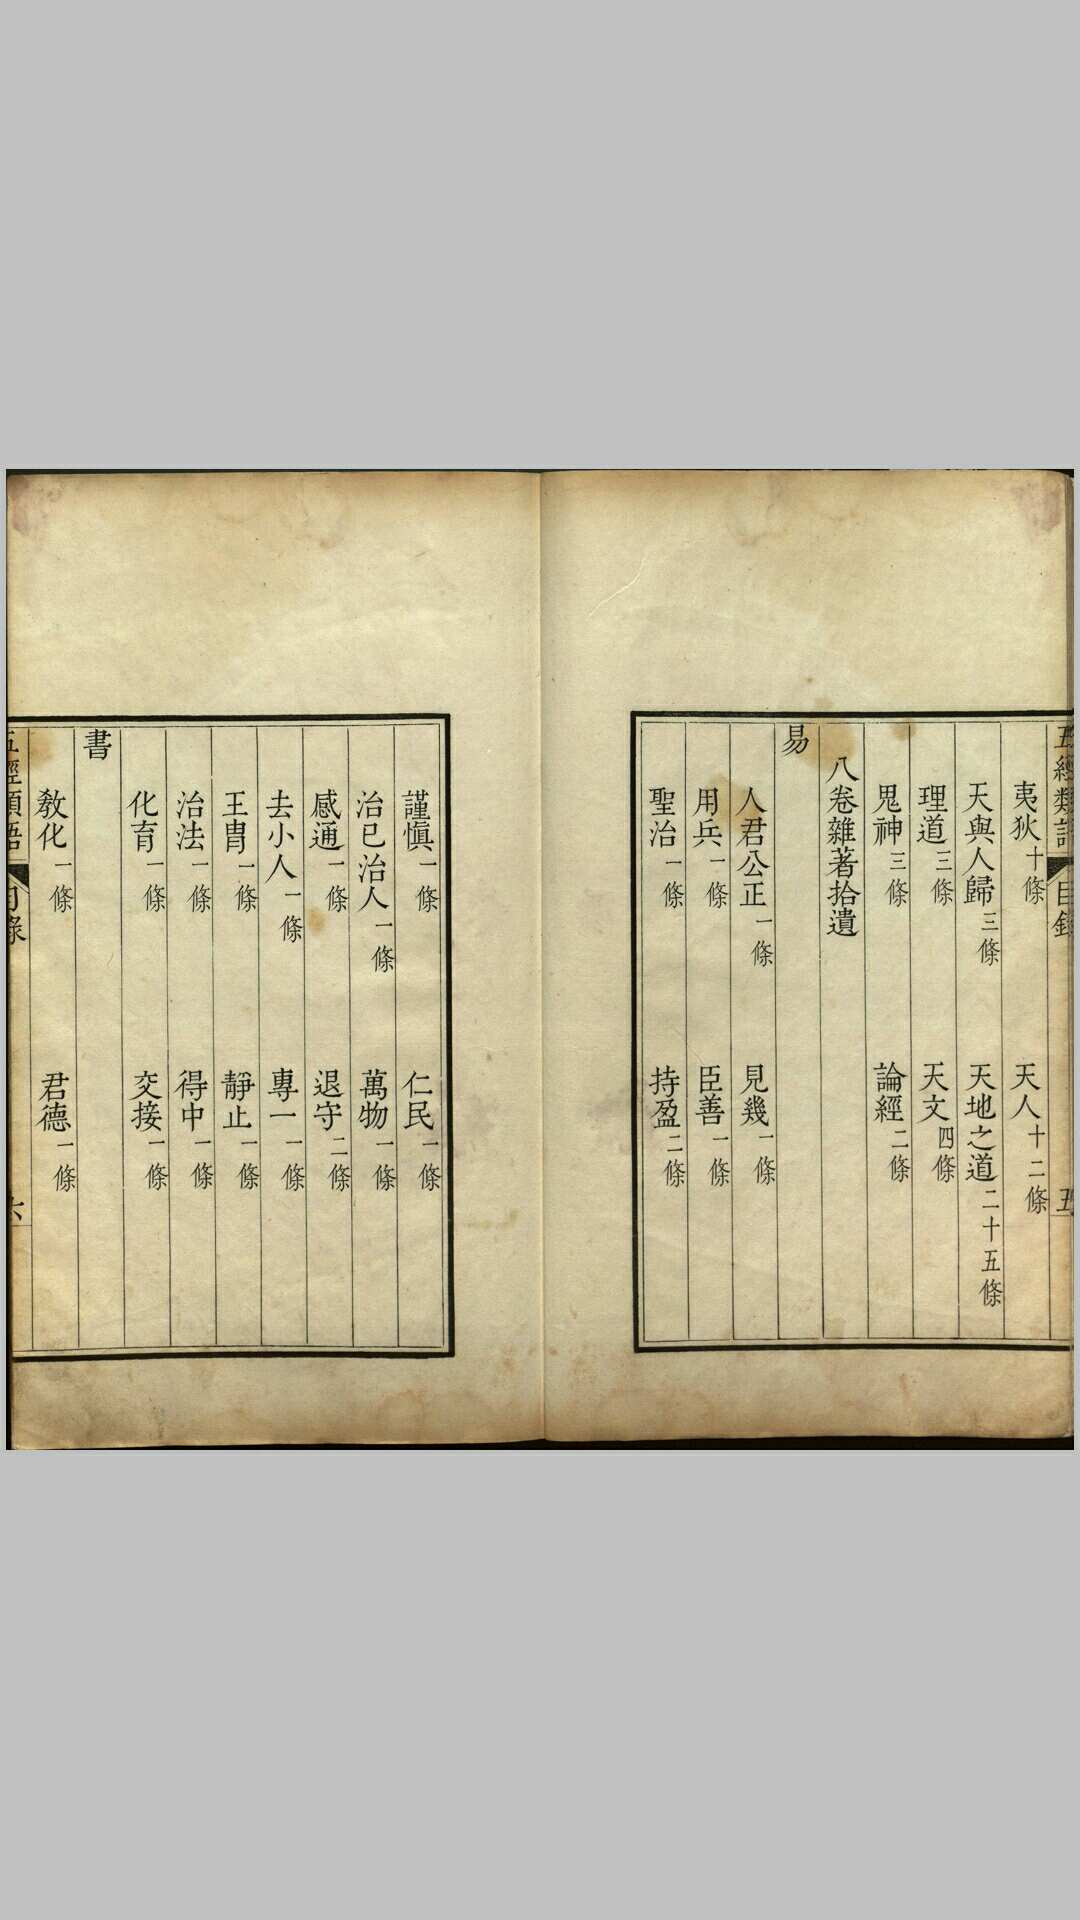 五經類語 目錄 五
夷狄十條 天人十二條
天與人歸三條 天地之道二十五條
理道三條 天文四條
鬼神三條 論經二條
八卷雜著拾遺
易
人君公正一條 見幾一條
用兵一條 臣善一條
聖治一條 持盈二條
謹慎一條 仁民一條
治已治人一條 萬物一條
感通一條 退守二條
去小人一條 專一一條
王冑一條 靜止一條
治法一條 得中一條
化育一條 交接一條
書
敎化一條 君德一條
五經類語 目錄 六